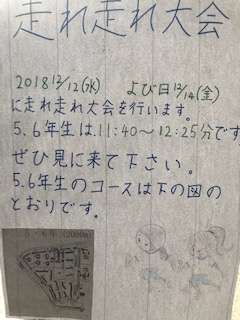 走れ走れ大会
2018 12/12(水) よび日12/14(金)
に走れ走れ大会を行います。
5.6年生は11:40～12:25分です
ぜひ見に来て下さい。
5.6年生のコースは下の図の
とおりです。